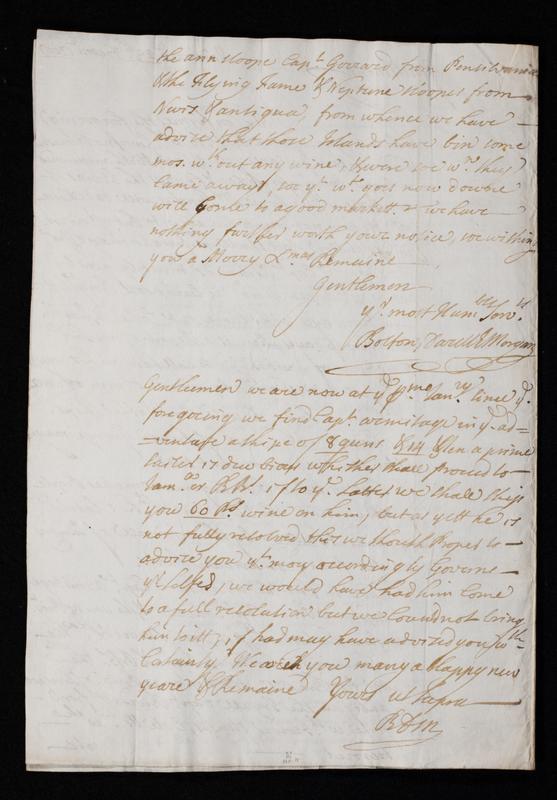 the ann sloope Capt. Gerrard from Pensilvania
& the Flying Fame & Neptune sloopes from
Nevis & antigua, from whence we have
advice that those Islands have bin some
mos. wth. out any wine, & were so wn. they
came away, so yt. wt. goes now
will Come to a good markett. & we have
nothing further worth your notice, soe wishing
you a Merry Xmas Remaine
Gentlemen
yr. most Humble Servts
Bolton, & Morgan
Gentlemen we are now at ye Janry. since ye.
foregoing we find Capt. armitage in ye. ad=
=venture a shipe of 8 guns & 14 Men a prime
sailer is dubious whether shall proceed to
Jamca. or Bbs. if to ye. Latter we shale ship
you 60 Ps. wine on him, but as yett he is
not fully resolved this we thought Proper to
advice you yt. may accordingly Governe
yr. selfes, we would have had him Come
to a full resolution but we Could not bring
him to itt, if had may have advised you wth.
Certainty. We wish you many a happy new
yeare & Remaine Yours ut supra
B & M